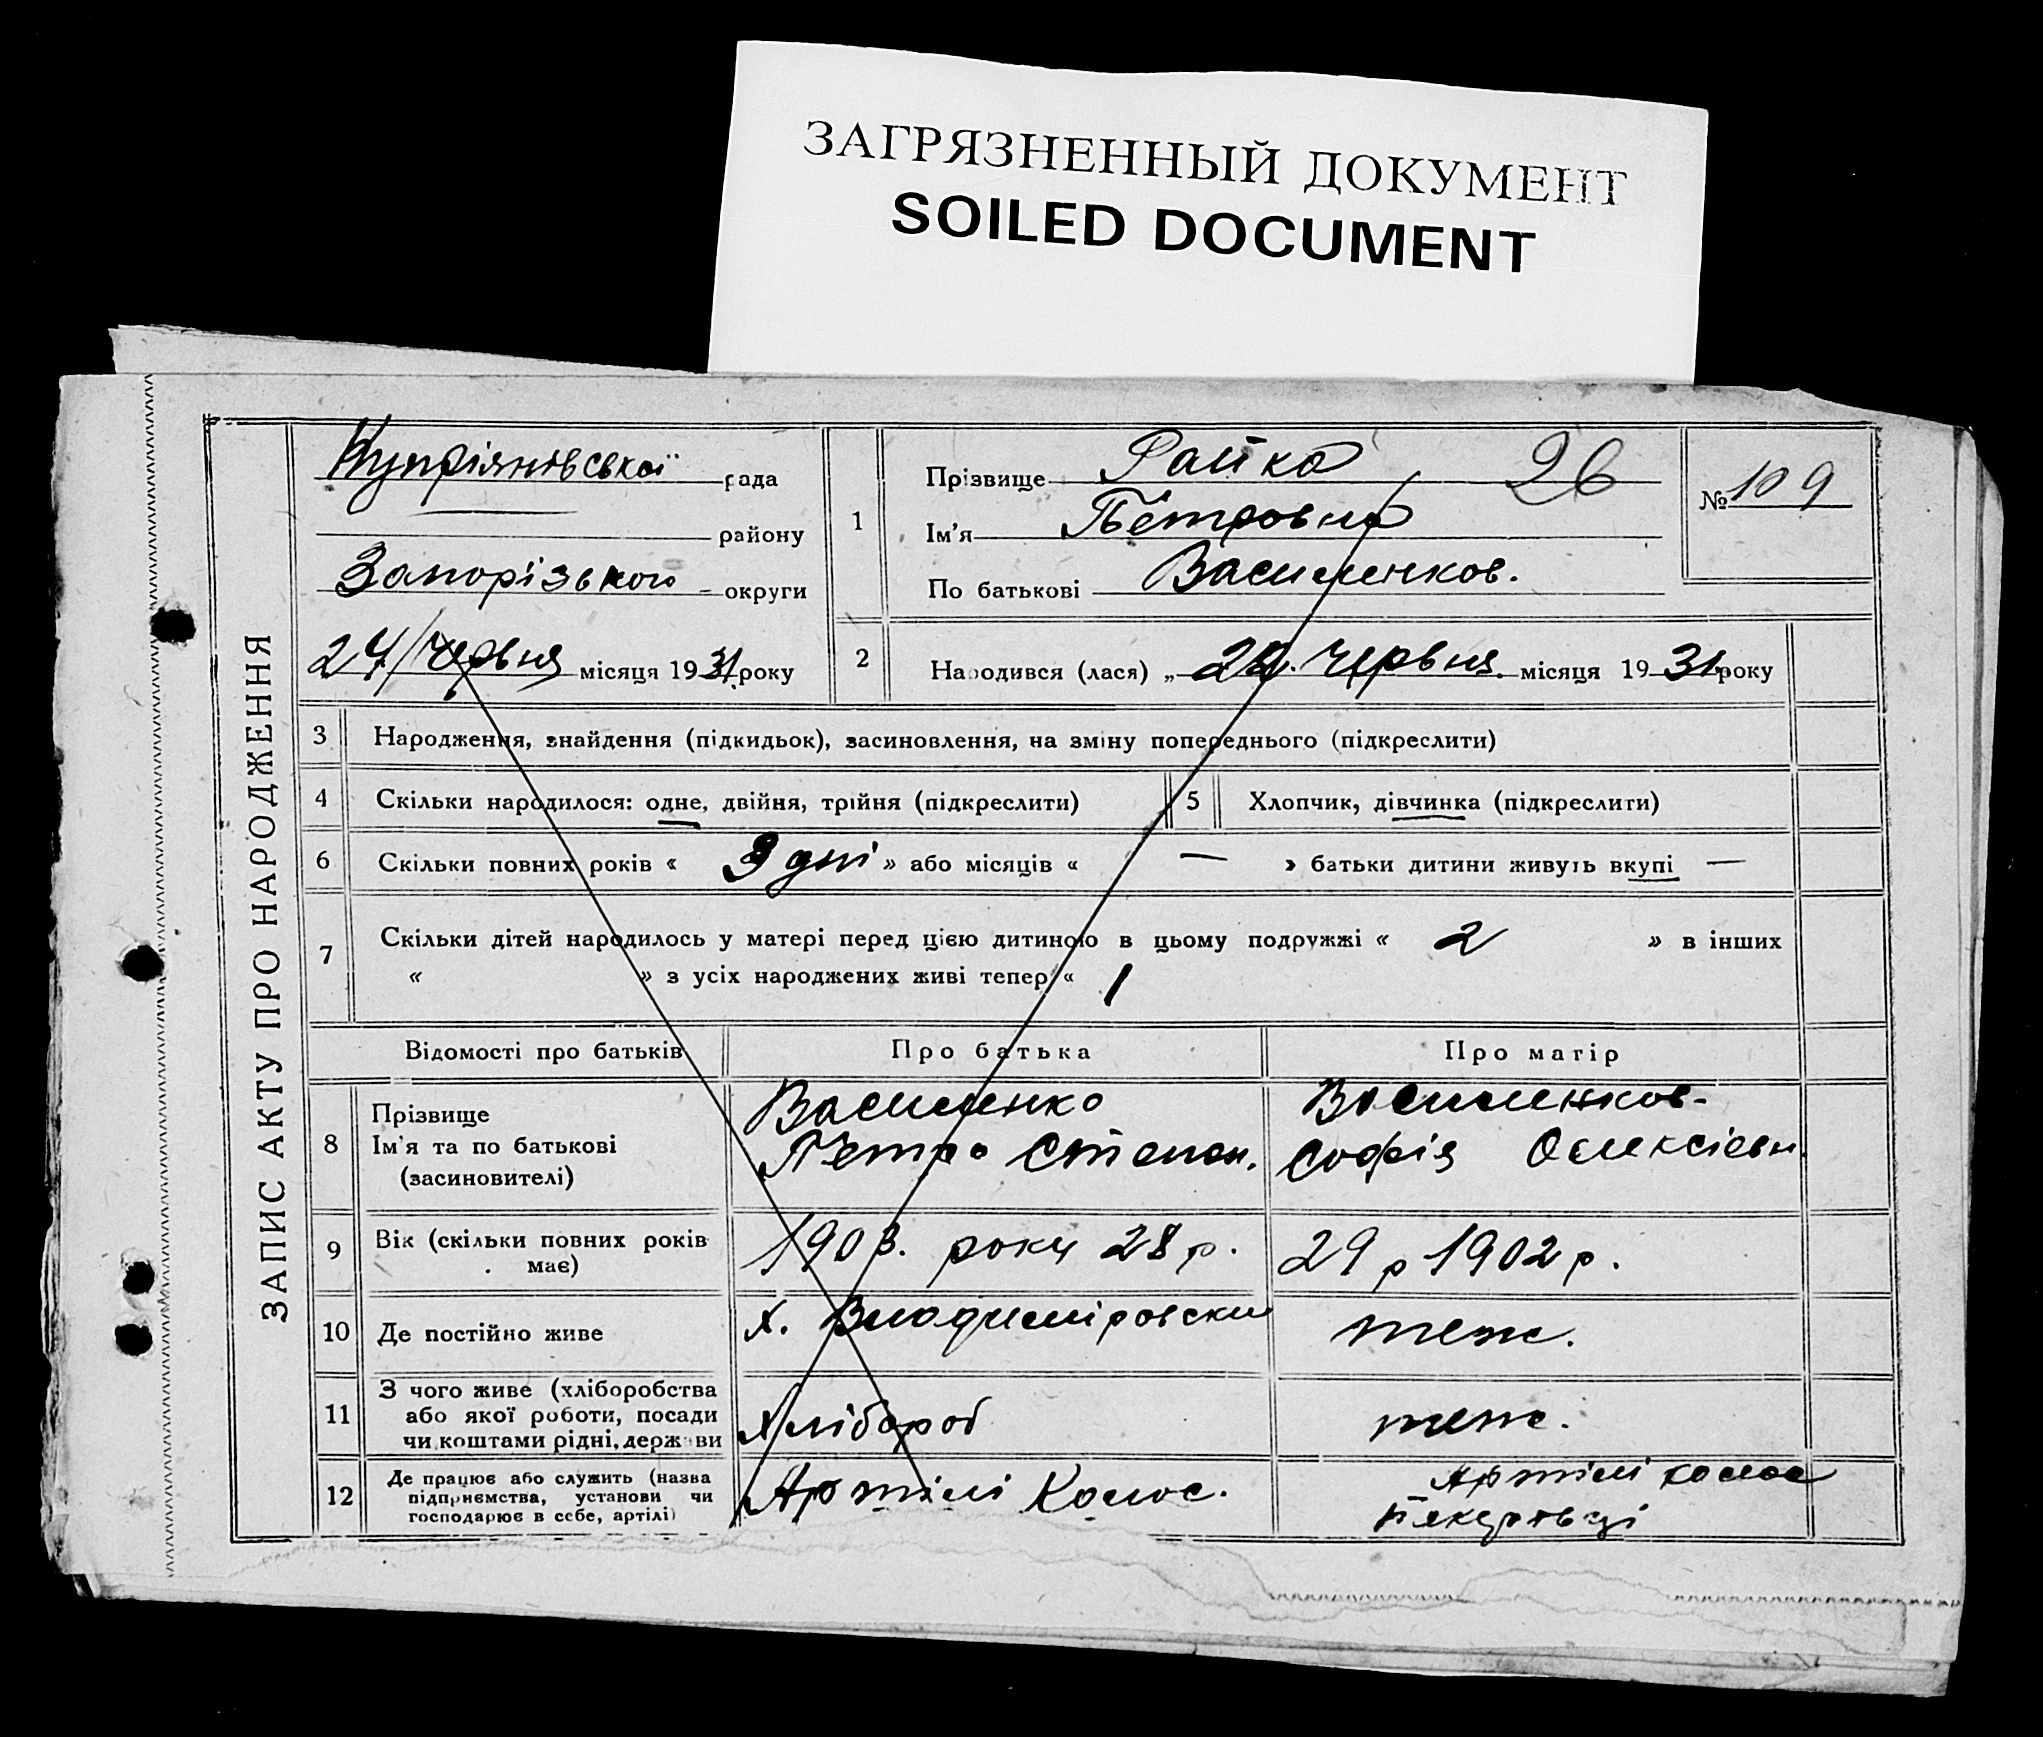 ЗАГРЯЗНЕННЫЙ ДОКУМЕНТ
SOILED DOCUMENT
ЗАПИС АКТУ ПРО НАРОДЖЕННЯ
Купріянівської рада
району
Запорізького округи
27/Червня місяця 1931 року
1
Прізвище Райка 26
Ім'я Петровна
По батькові Василенков.
№ 109
2 Народився (лася) „ Червня. місяця 1931 року
3 Народження, знайдення (підкидьок), засиновлення, на зміну попереднього (підкреслити)
4 Скільки народилося: одне, двійня, трійня (підкреслити) 5 Хлопчик, дівчинка (підкреслити)
6 Скільки повних років « 3 дні » або місяців « — » батьки дитини живуть вкупі —
7 Скільки дітей народилось у матері перед цією дитиною в цьому подружжі « 2 » в інших
« » з усіх народжених живі тепер « 1
Відомості про батьків Про батька Про матір
8 Прізвище
Ім'я та по батькові
(засиновителі)
Василенко
Петро Степан.
Василенков-
Софія Олексієвн.
9 Вік (скільки повних років
має)
1903. року 28 р.
29 р 1902 р.
10 Де постійно живе х. Владиміровски теж.
11 З чого живе (хліборобства
або якої роботи, посади
чи коштами рідні, держави
Хлібороб
теж.
12 Де працює або служить (назва
підприємства, установи чи
господарює в себе, артілі)
Артілі Колос.
Артілі колос